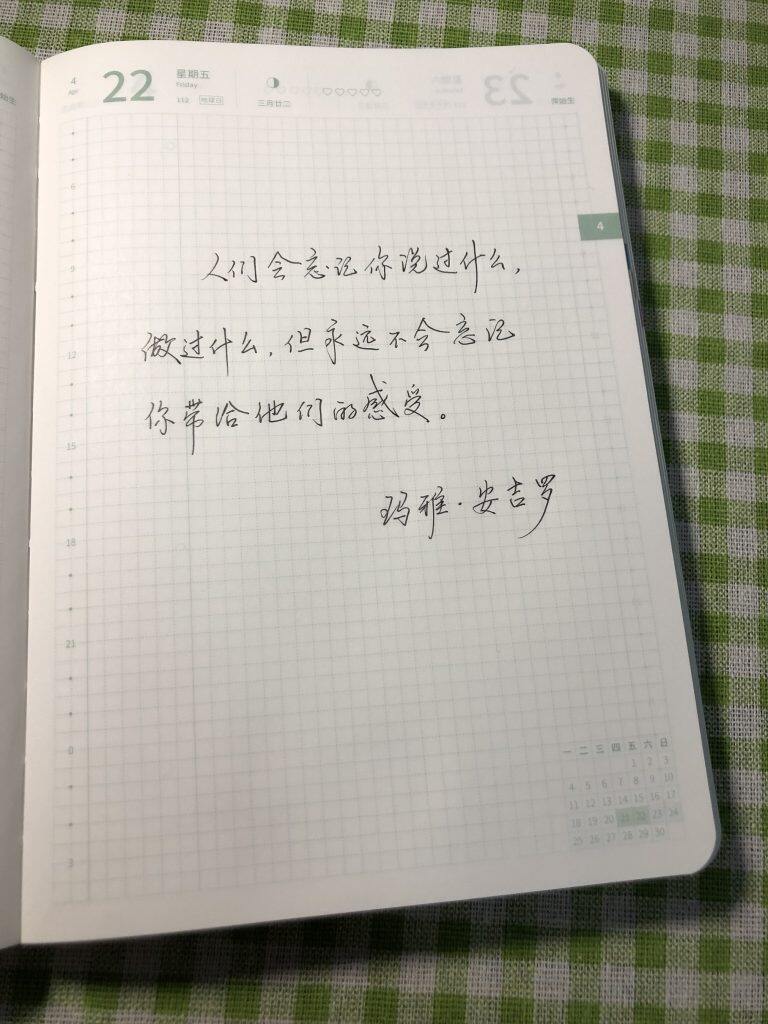 4
Apr
22
星期五
Friday
112 地球日
三月廿二
4
6
9
12
15
18
21
0
3
人们会忘记你说过什么，
做过什么，但永远不会忘记
你带给他们的感受。
玛雅·安吉罗
一 二 三 四 五 六 日
1 2 3
4 5 6 7 8 9 10
11 12 13 14 15 16 17
18 19 20 21 22 23 24
25 26 27 28 29 30